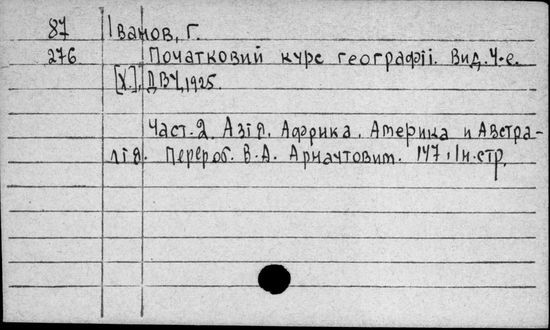 87 Іванов, Г.
276 Початковий курс географії. Вид. 4-е.
[Х.], ДВУ, 1925.
Част. 2. Азія. Африка. Америка и Австра-
лія. Перероб. В.А. Арнаутовим. 147, 1 н. стр.